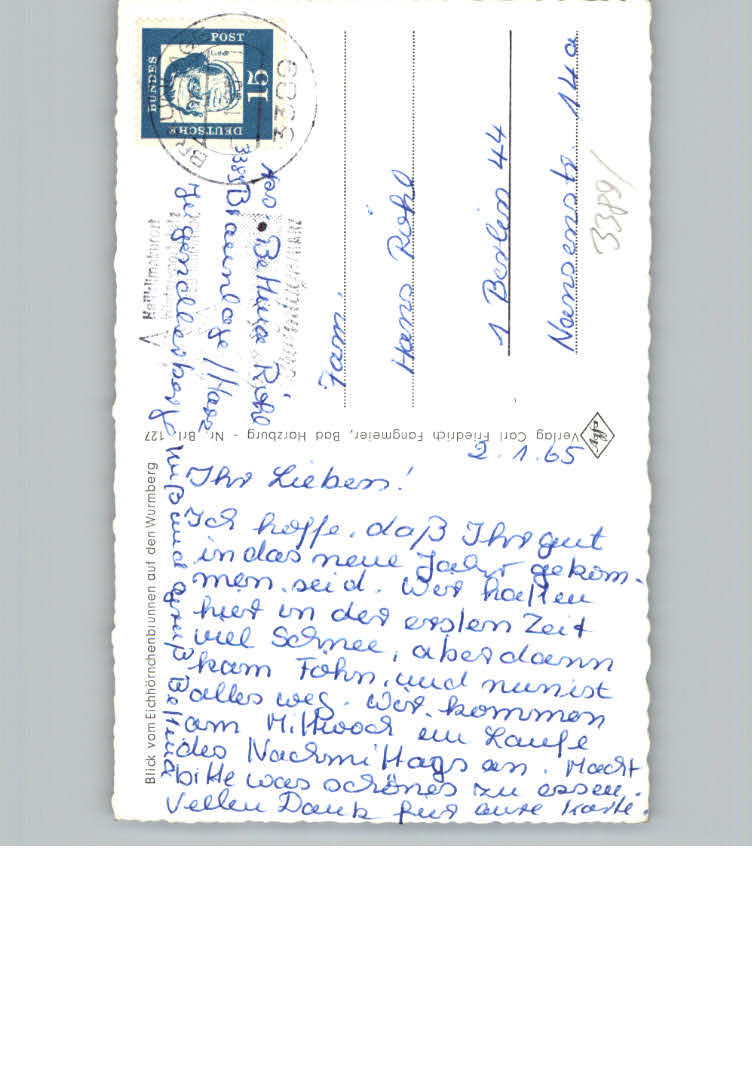 2.1.65
Ihr Lieben!
Ich hoffe, daß Ihr gut
in das neue Jahr gekom-
men seid. Wir hatten
hier in der ersten Zeit
viel Schnee, aber dann
kam Föhn, und nun ist
alles weg. Wir kommen
am Mittwoch im Laufe
des Nachmittags an. Macht
bitte was schönes zu essen.
Vielen Dank für eure Karte.
Kuß und Gruß Bettina
Abs. Bettina Röhl
3389 Braunlage/Harz
Jugendherberge
Fam.
Hans Röhl
1 Berlin 44
Nansenstr. 14a
3389/
DEUTSCHE
BUNDES
POST
15
3389
Heilklimakurort
Blick vom Eichhörnchenbrunnen auf den Wurmberg
Verlag Carl Friedrich Fangmeier, Bad Harzburg - Nr. Brl. 127